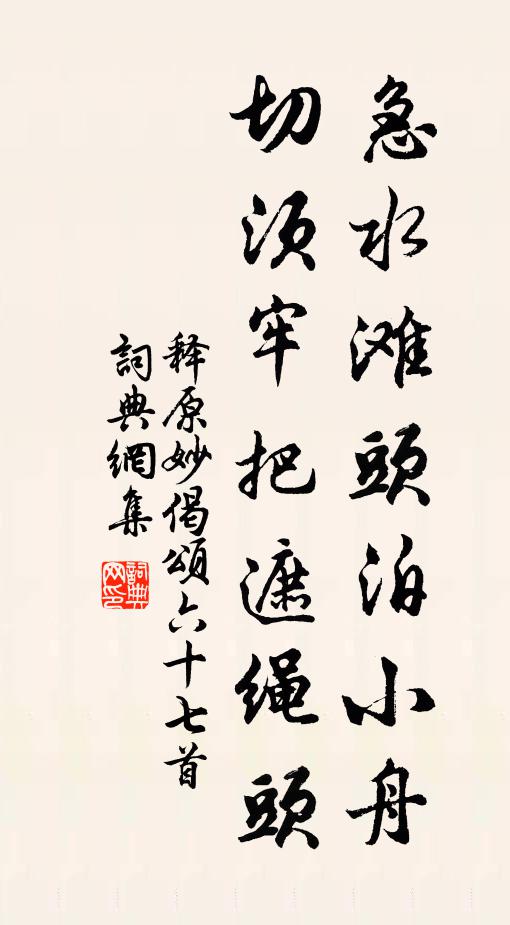 急水滩頭泊小舟
切须牢把遮绳頭
释原妙偈頌六十七首
詞典網集
詞典网印